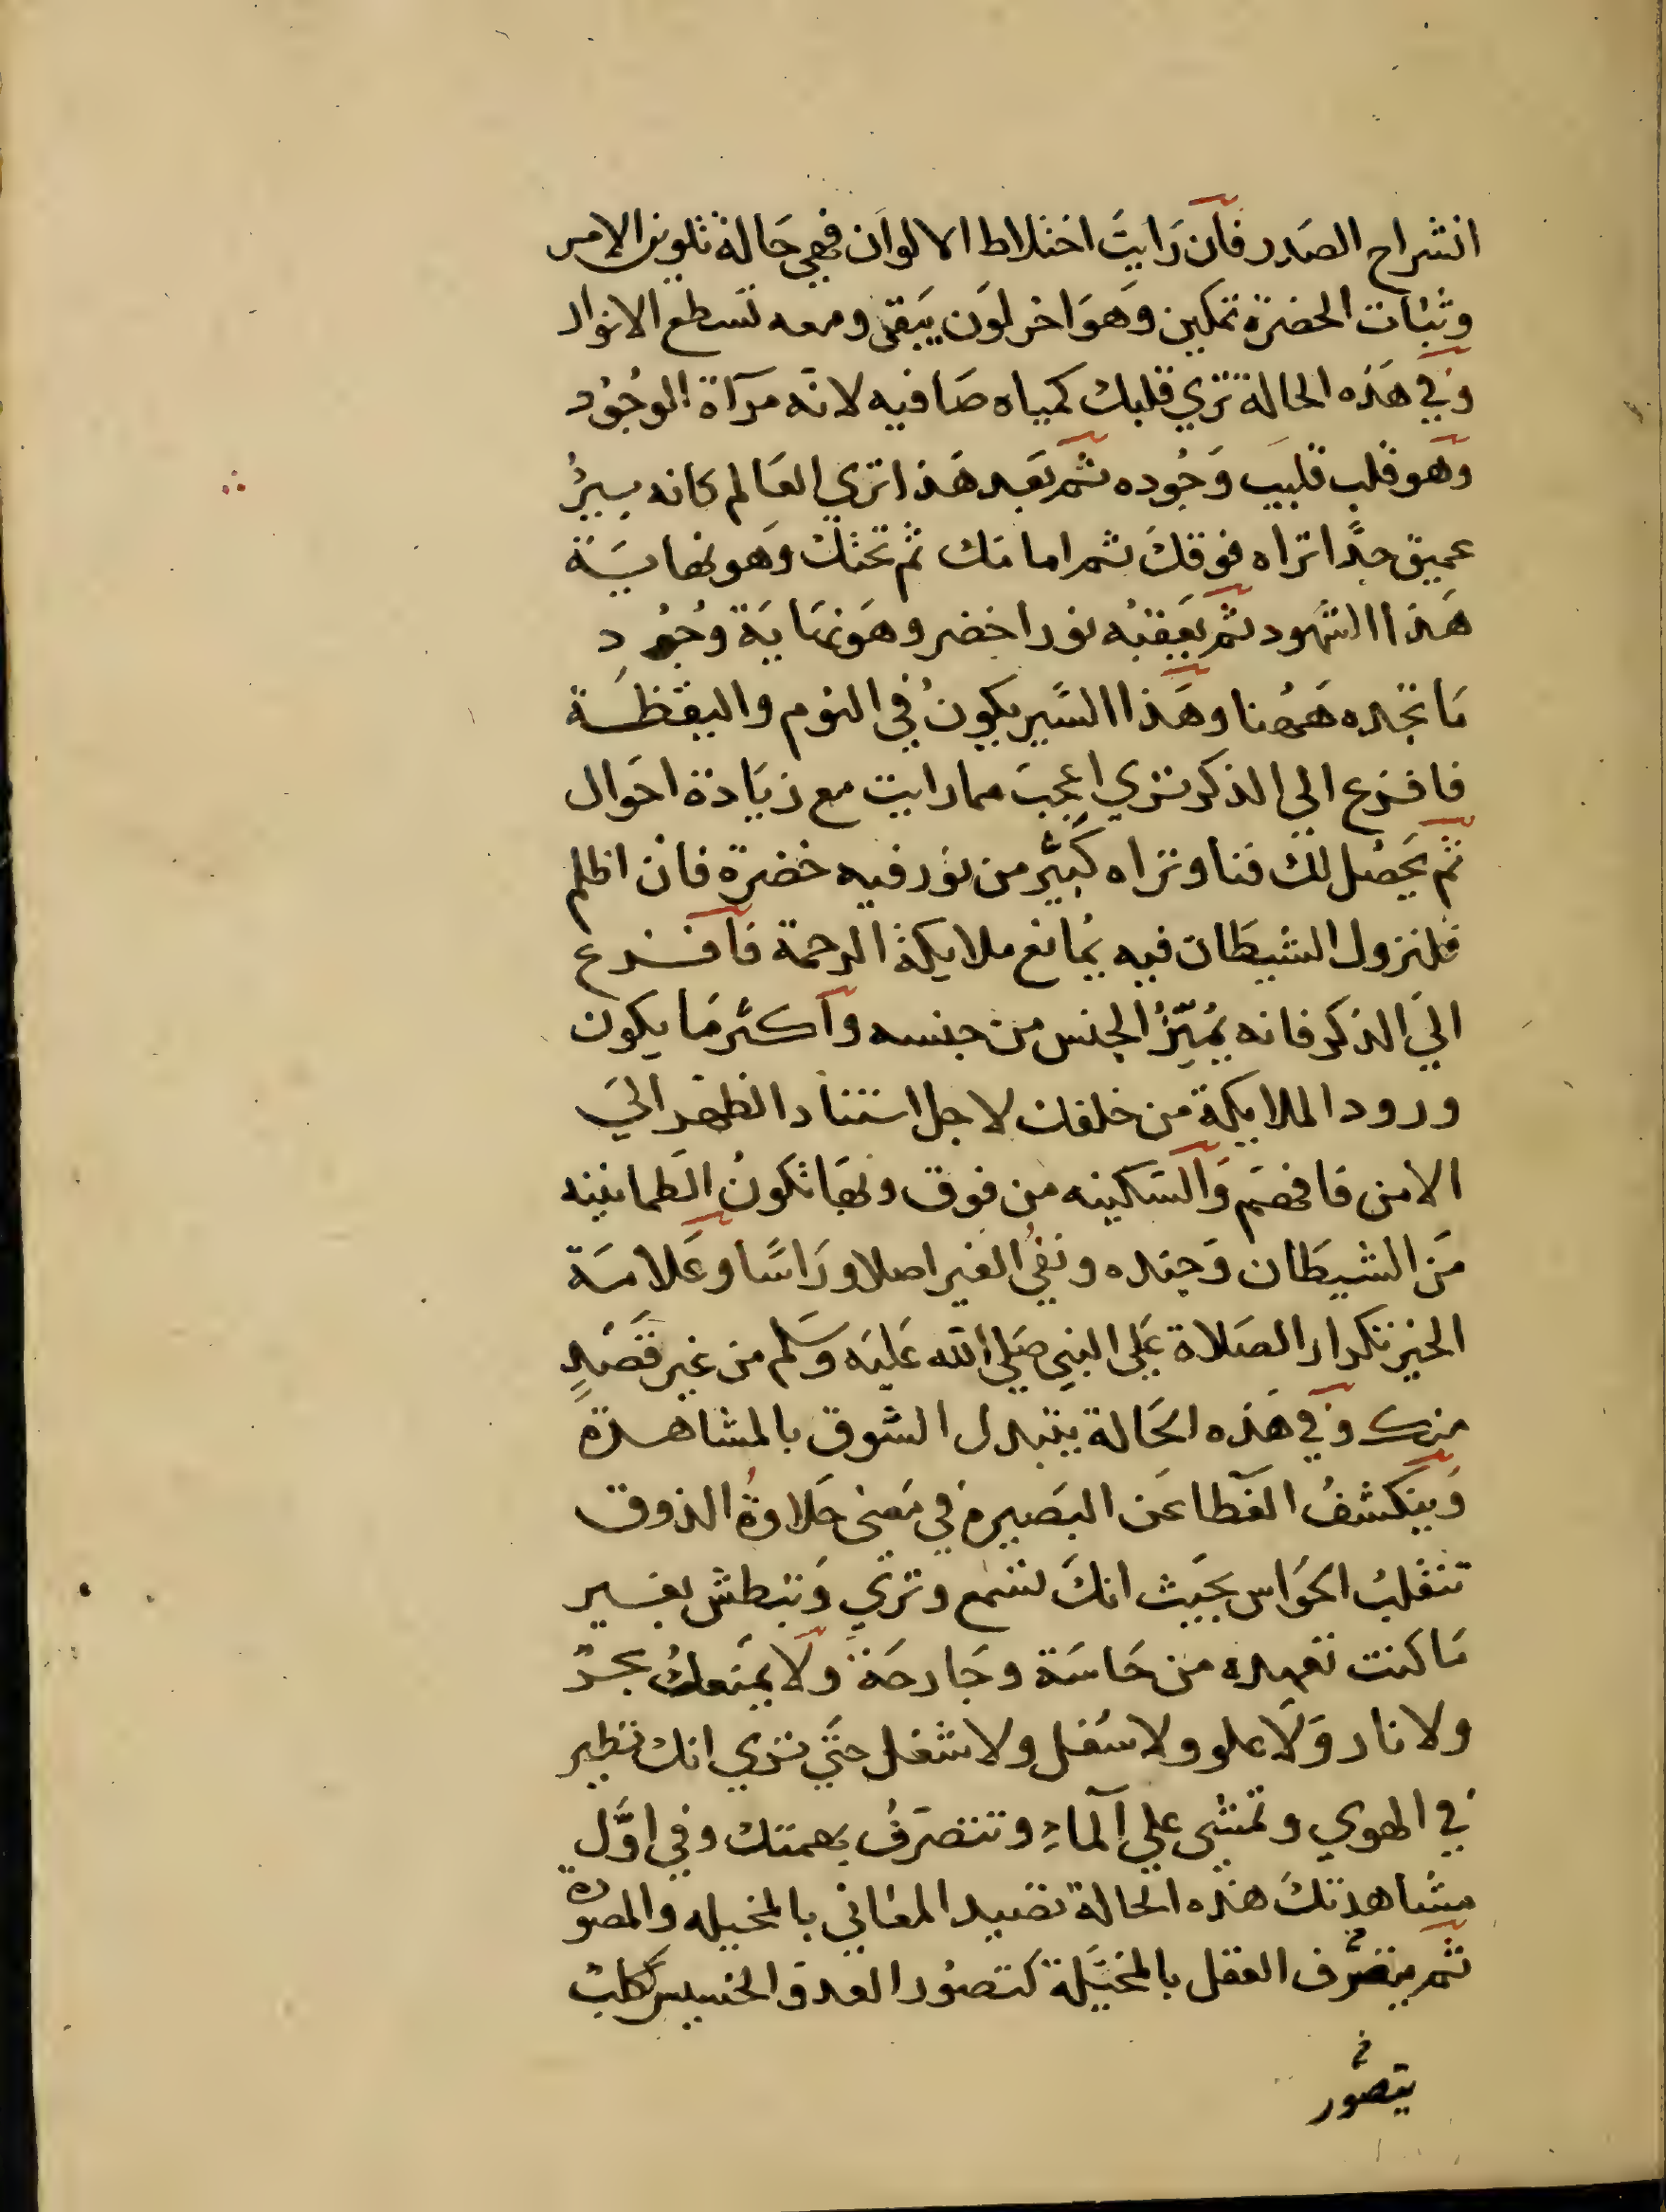 انشراح الصَدر فان رَايتَ اختلاط الالوَان فهي حَالة تلوين الامر
وثبَات الخضرَة تمكين وَهوَ اخر لوَن يَبقى ومعه تسَطع الانوار
وَفي هَذه الحالة ترَي قلبك كمياه صَافيه لانه مرآة الوجُود
وَهو قلب قلبيَ وَجُوده ثم بعَد هَذا ترَي العَالم كانه بيرُ
عميق جدًا تراه فوقكَ ثم امامك ثم تحتك وَهو نهايَة
هَذا الشهود ثم يعَقبُه نور اخضر وهَو نهَايَة وُجُود
مَا تجده هَهُنا وهَذا السَير يكونُ في النوم واليقظَة
فافزع الي الذكر ترَي اعجبَ مما رايت مع زيَادة احَوال
ثم يَحصُل لك فنا وتراه كَبيٌر من نوُر فيه خضرة فان اظلم
فلنزول الشيطَان فيه يُمانع ملايكة الرحمة فافزع
اليَ الذكر فانه يُميّزُ الجنس من جنسه واكثر مَا يكون
ورود الملايكة من خلفك لاجل استناد الظهر اليَ
الامن فافهَم وَالسَكينه من فوق وبهَا تكونُ الطمانينه
مَن الشيطَان وَجنده ونفيُ الغير اصلا ورَاسًا وعَلامَة
الخير تكرار الصَلاة عَلي النبي صَلي الله عَليَه وسَلم من غير قَصَدٍ
منك وَفي هَذه الحَالة يتبدل الشوق بالمشاهدة
وَينكشفُ الغَطا عَن البصَيرة في مَعنى حَلاوةُ الذوق
تنقلبُ الحوَاس بحيَث انكَ تسمع وترَي وَتبطش بغير
مَا كنت تعهده من حَاسَة وجَارحَة وَلا يمنَعك بحرٌ
ولا نار وَلا علو ولا سُفل ولا شغل حتي ترَي انك تطير
في الهوي وتمشي علي الماءِ وتتصرَفُ بهمتك وفي اوَّل
مشاهدتكَ هذه الحالة تصَيد المعَاني بالمخيله والمصوره
ثم يتصَرَّف العقل بالمخيَلة كتصوُر العدوَ الخسيس كَكلبٌ
يتصوَّر